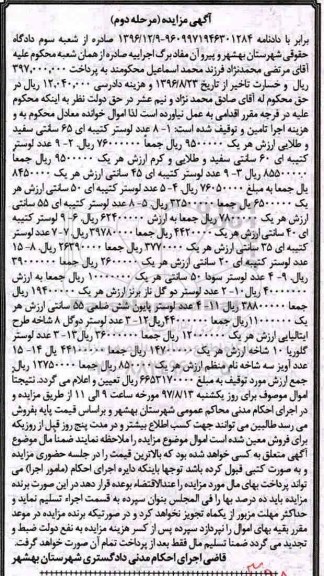 آگهی مزایده (مرحله دوم)
برابر با دادنامه ۹۶۰۹۹۷۱۹۴۶۳۰۱۲۸۴-۱۳۹۶/۱۲/۹ صادره از شعبه سوم دادگاه
حقوقی شهرستان بهشهر و پیرو آن مفاد برگ اجراییه صادره از همان شعبه محکوم علیه
آقای مرتضی محمدنژاد فرزند محمد اسماعیل محکومند به پرداخت ۳۹۷,۰۰۰,۰۰۰
ریال و خسارت تاخیر از تاریخ ۱۳۹۶/۸/۲۳ و هزینه دادرسی ۱۲,۰۴۰,۰۰۰ ریال در
حق محکوم له آقای صادق محمد نژاد و نیم عشر در حق دولت نظر به اینکه محکوم
علیه در فرجه مقرر اقدامی به عمل نیاورده است لذا اموال خوانده معادل محکوم به و
هزینه اجرا تامین و توقیف شده است: ۱- ۸ عدد لوستر کتیبه ای ۶۵ سانتی سفید
و طلایی ارزش هر یک ۹۵۰۰۰۰۰ ریال جمعا ۷۶۰۰۰۰۰۰ ریال ۲- ۹ عدد لوستر
کتیبه ای ۶۰ سانتی سفید و طلایی و کرم ارزش هر یک ۹۵۰۰۰۰۰ ریال جمعا
۸۵۵۰۰۰۰۰ ریال ۳- ۹ عدد لوستر کتیبه ای ۴۵ سانتی ارزش هر یک ۸۴۵۰۰۰۰
ریال جمعا به مبلغ ۷۶۰۵۰۰۰۰ ریال ۴- ۵ عدد لوستر کتیبه ای ۵۰ سانتی ارزش هر
یک ۶۵۰۰۰۰۰ ریال جمعا ۳۲۵۰۰۰۰۰ ریال ۵- ۸ عدد لوستر کتیبه ای ۵۵ سانتی
ارزش هر یک ۷۸۰۰۰۰۰ ریال جمعا به ارزش ۶۲۴۰۰۰۰۰ ریال ۶- ۹ لوستر کتیبه
ای ۴۰ سانتی ارزش هر یک ۴۴۲۰۰۰۰ ریال جمعا ۳۹۷۸۰۰۰۰ ریال ۷- ۷ عدد لوستر
کتیبه ای ۳۵ سانتی ارزش هر یک ۳۷۷۰۰۰۰ ریال جمعا ۲۶۳۹۰۰۰۰ ریال ۸- ۱۵
عدد لوستر کتیبه ای ۲۰ سانتی ارزش هر یک ۲۶۰۰۰۰۰ ریال جمعا ۳۹۰۰۰۰۰۰
ریال ۹- ۴ عدد لوستر سودا ۵۰ سانتی هر یک ۱۰۰۰۰۰۰۰ ریال جمعا به ارزش
۴۰۰۰۰۰۰۰ ریال ۱۰- ۲ عدد لوستر دو گل ناز برنز ارزش هر یک ۱۹۴۰۰۰۰۰ ریال
جمعا ۳۸۸۰۰۰۰۰ ریال ۱۱- ۴ عدد لوستر پایون شش ضلعی ۵۵ سانتی ارزش هر
یک ۱۱۰۰۰۰۰۰ ریال جمعا ۴۴۰۰۰۰۰۰ ریال ۱۲- ۳ عدد لوستر دوگل ۸ شاخه طرح
ایتالیایی ارزش هر یک ۱۲۰۰۰۰۰۰ ریال جمعا ۳۶۰۰۰۰۰۰ ریال ۱۳- ۳ عدد لوستر
گلوریا ۱۰ شاخه ارزش هر یک ۱۴۷۰۰۰۰۰ ریال جمعا ۴۴۱۰۰۰۰۰ ریال ۱۴- ۱۵
عدد آویز سه شاخه نام منظم ارزش هر یک ۸۵۰۰۰۰ ریال جمعا ۱۲۷۵۰۰۰۰ ریال
جمع ارزش مورد توقیف به مبلغ ۶۶۵۲۱۷۰۰۰۰ ریال تعیین و اعلام می گردد. نتیجتا
اموال موصوف برای روز یکشنبه ۹۷/۸/۱۳ مورخه ساعت ۹ الی ۱۱ از طریق مزایده و
در اجرای احکام مدنی محاکم عمومی شهرستان بهشهر و براساس قیمت پایه بفروش
می رسد طالبین می توانند جهت کسب اطلاع بیشتر و در مدت پنج روز قبل از روزیکه
برای فروش معین شده است اموال موضوع مزایده را ملاحظه نمایند ضمنا مال موضوع
آگهی متعلق به کسی خواهد شده بود که بالاترین قیمت را در جلسه حضوری مزایده
و به صورت کتبی قبول کرده باشد توجها باینکه دایره اجرای احکام (مامور اجرا) می
تواند پرداخت بهای مال مورد مزایده را عندالاقتضاء بوعده قرار دهد در این صورت برنده
مزایده باید ده درصد بها را فی المجلس بنوان سپرده به قسمت اجراء تسلیم نماید و
حداکثر مهلت مزبور از یکماه تجاوز نخواهد کرد و در صورتیکه برنده مزایده در موعد
مقرر بقیه بهای اموال را نپردازد سپرده پس از کسر هزینه مزایده به نفع دولت ضبط و
تجدید می گردد ضمنا تسلیم مال فقط بعد از پرداخت تمام آن صورت خواهد گرفت.
قاضی اجرای احکام مدنی دادگستری شهرستان بهشهر